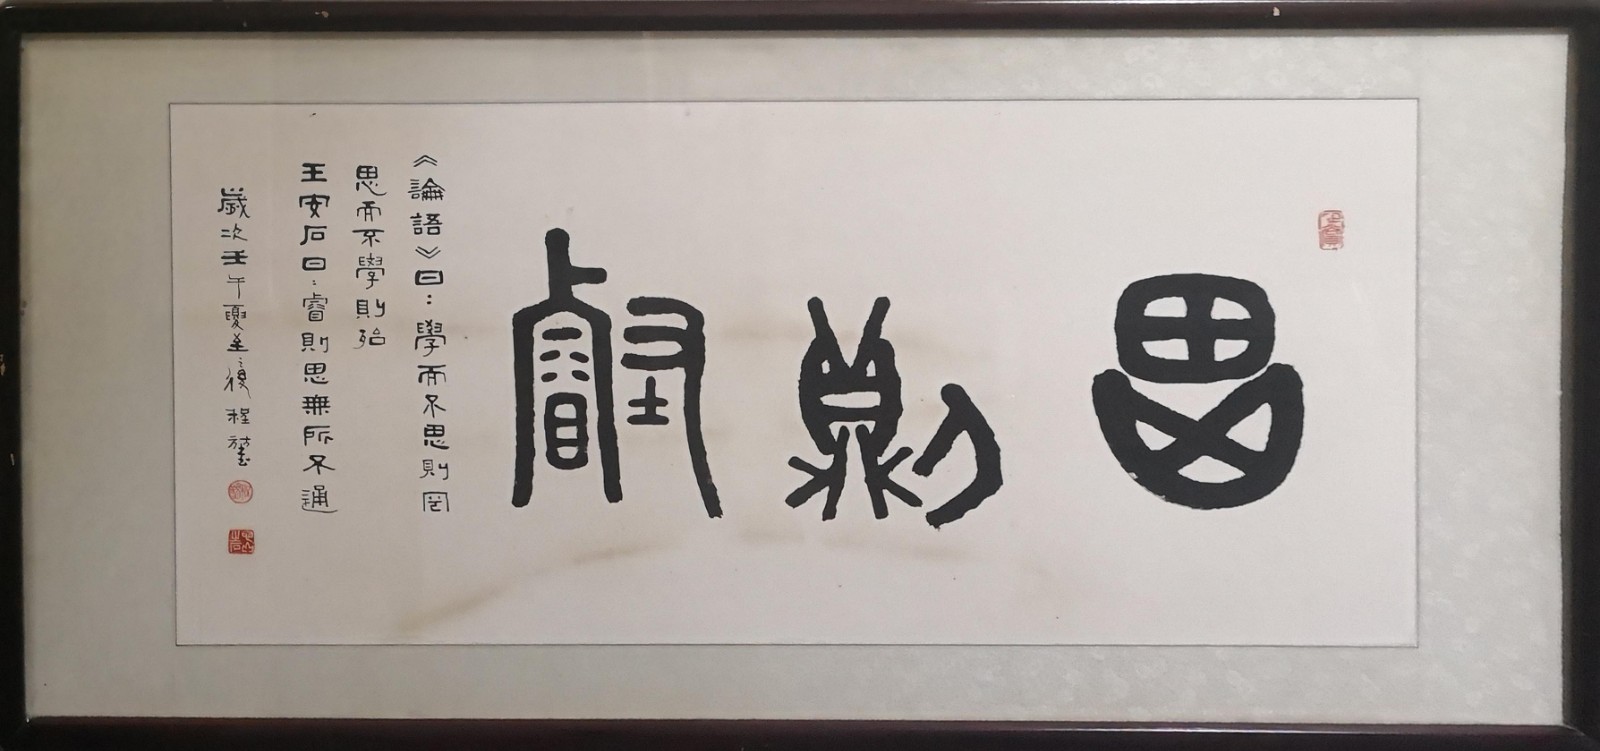 思則睿
《論語》曰：學而不思則罔
思而不學則殆
王安石曰：睿則思無所不通
歲次壬午夏至後程